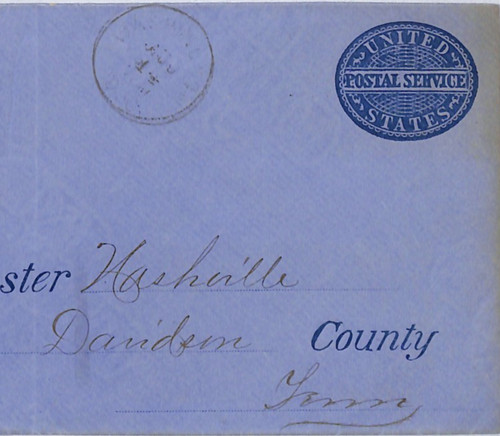 UNITED
POSTAL SERVICE
STATES
ster Nashville
Davidson County
Tenn